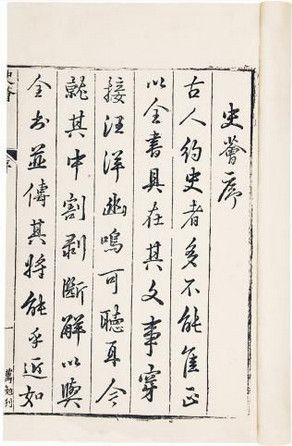 史薈序
古人約史者多不能正
以全書具在其文事穿
接汪洋幽鳴可聽耳今
就其中割剥斷解以與
全書並傳其將能乎近如
史薈
序
一